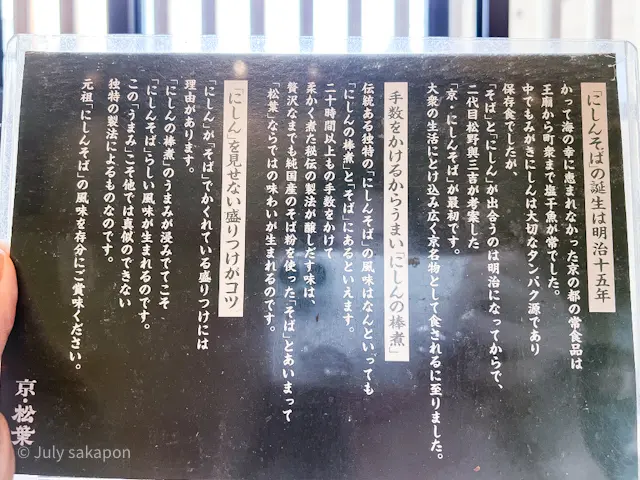 「にしんそば」の誕生は明治十五年
かつて海の幸に恵まれなかった京の都の常食品は
王廟から町衆まで塩干魚が常でした。
中でもみがきにしんは大切なタンパク源であり
保存食でしたが、
「そば」と「にしん」が出合うのは明治になってからで、
二代目松野與三吉が考案した
「京・にしんそば」が最初です。
大衆の生活にとけ込み広く京名物として食されるに至りました。
手数をかけるからうまい「にしんの棒煮」
伝統ある独特の「にしんそば」の風味はなんといっても
「にしんの棒煮」と「そば」にあるといえます。
二十時間以上もの手数をかけて
柔かく煮た秘伝の製法が醸しだす味は、
贅沢なまでも純国産のそば粉を使った「そば」とあいまって
「松葉」ならではの味わいが生まれるのです。
「にしん」を見せない盛りつけがコツ
「にしん」が「そば」でかくれている盛りつけには
理由があります。
「にしんの棒煮」のうまみが浸みでてこそ
「にしんそば」らしい風味が生まれるのです。
この「うまみ」こそ他では真似のできない
独特の製法によるものなのです。
元祖「にしんそば」の風味を存分にご賞味ください。
京・松葉
© July sakapon